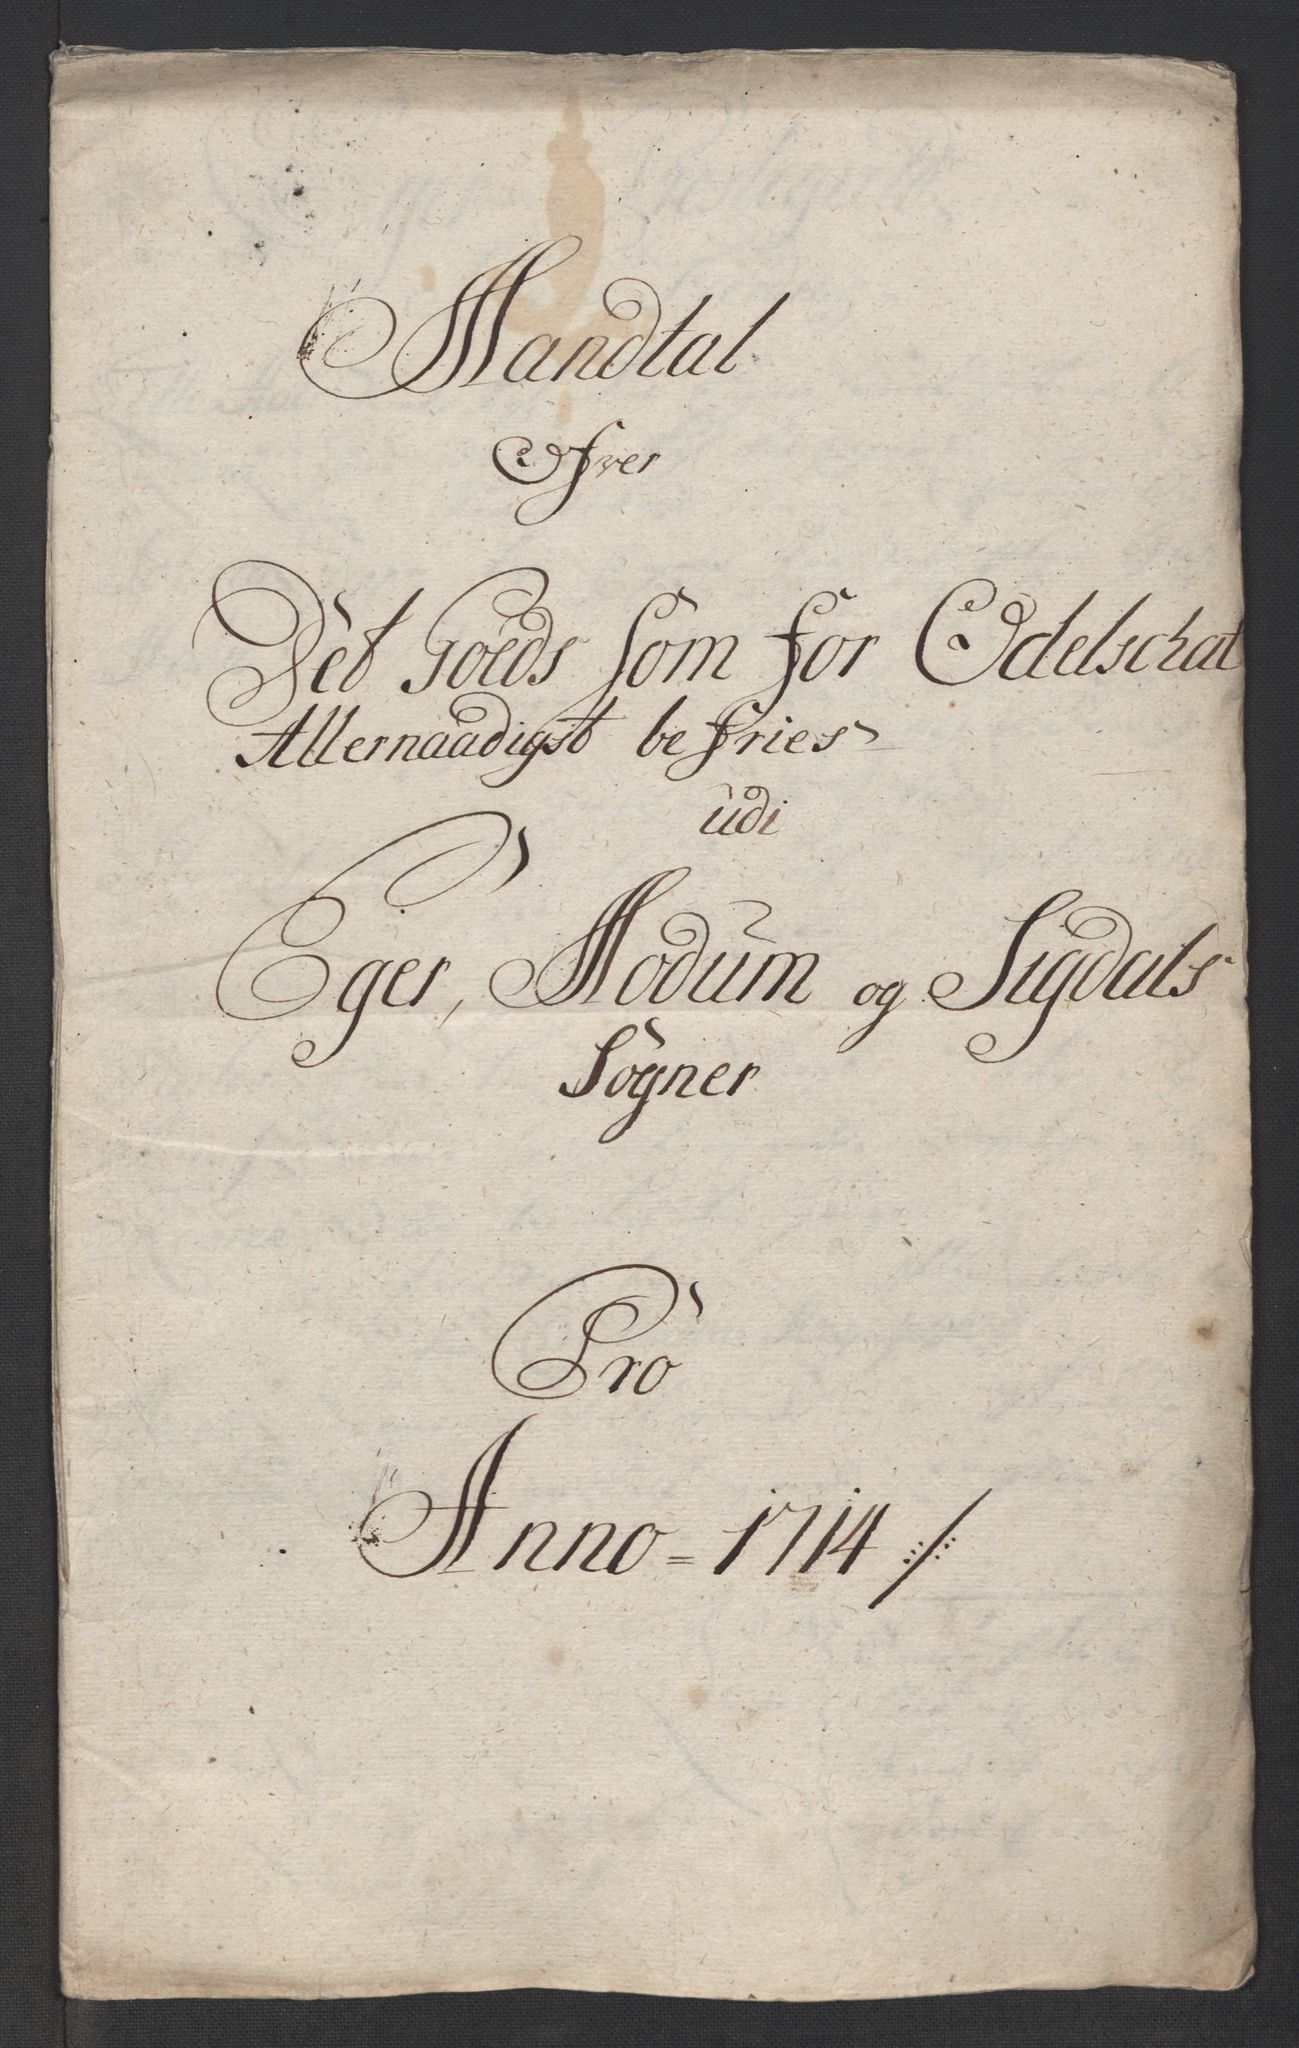 Mandtal
Ofver
Det Goeds som for Odelschat
Allernaadigst befries
udi
Eger, Modum og Sigdals
Sogner
Pro
Anno = 1714 ./.